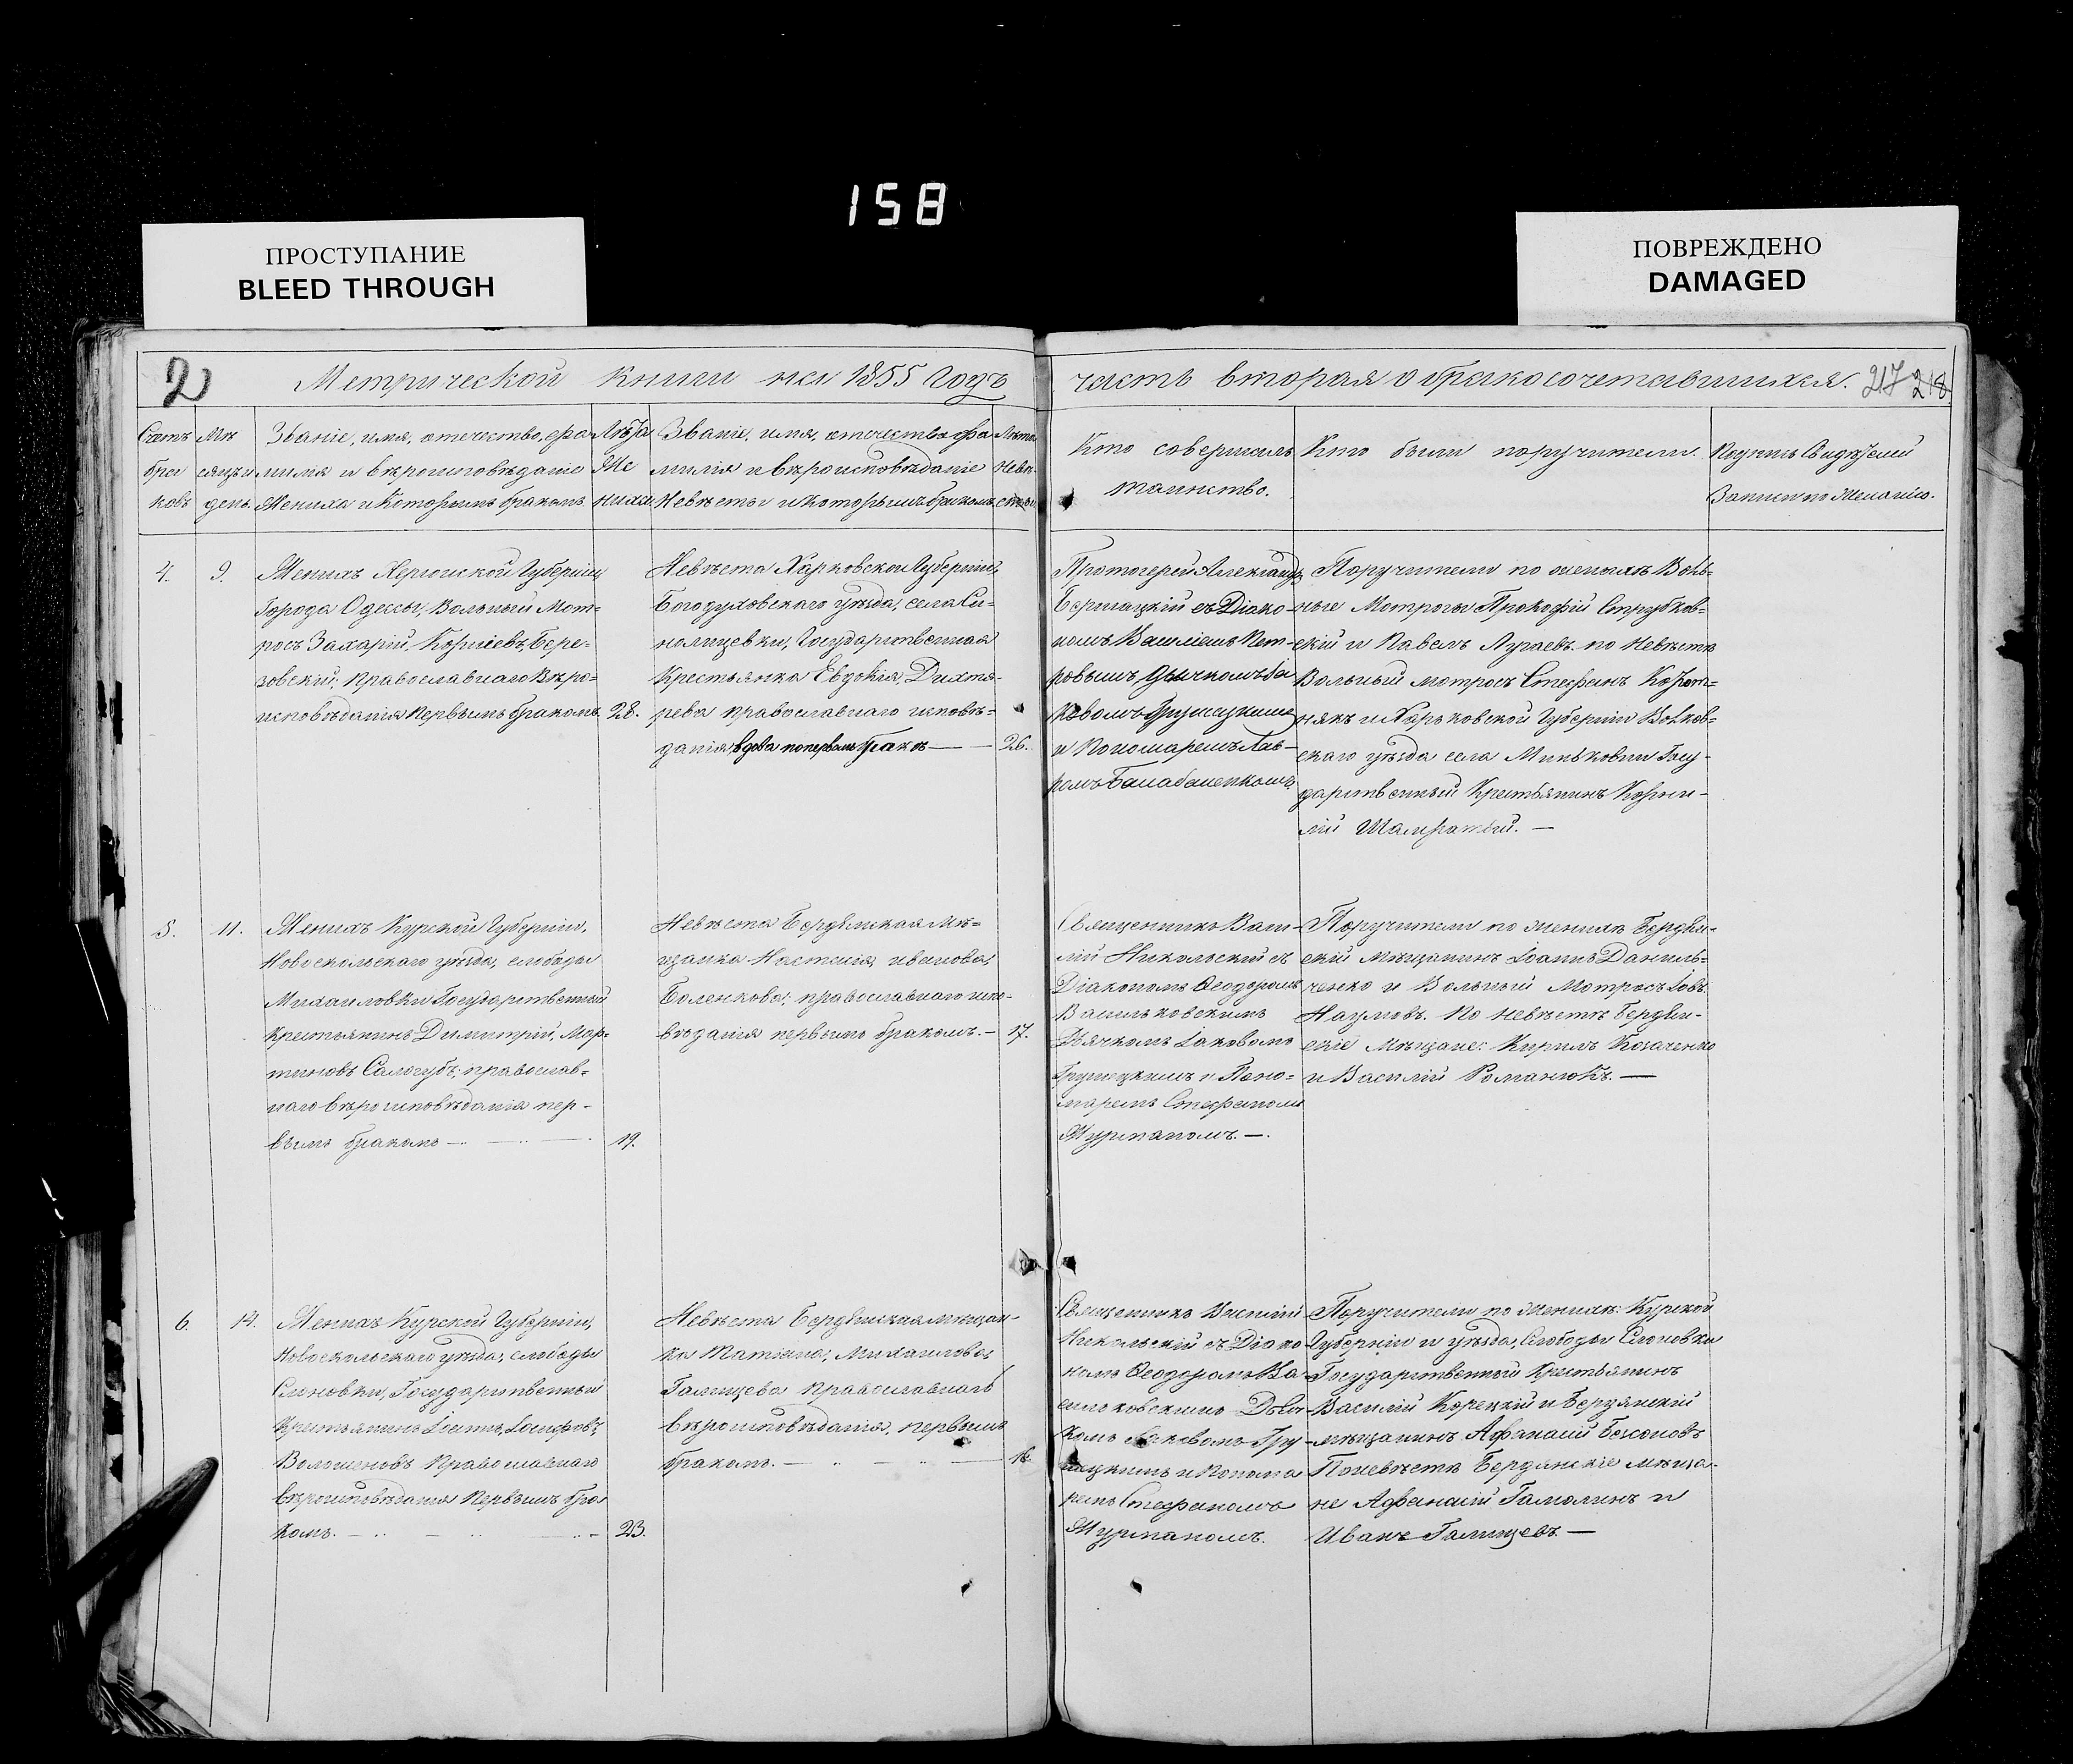 158
ПРОСТУПАНИЕ
BLEED THROUGH
ПОВРЕЖДЕНО
DAMAGED
2
Метрической книги на 1855 годъ
часть вторая о бракосочетавшихся. 217 218
Счетъ
бра
ковъ
Мѣ
сяцъ и
день.
Званіе, имя, отечество, фа
милія и вѣроисповѣданіе
Жениха и Которымъ бракомъ
Лѣта
Же
ниха.
Званіе, имя, отечество фа
милія и вѣроисповѣданіе
Невѣсты и которымъ бракомъ
Лѣта
Невѣ
сты
Кто совершалъ
таинство.
Кто были поручители.
Записи по Желанію.
4.
9.
Женихъ Херсонской Губерніи
Города Одессы, Вольный Мат=
росъ Захарій Корнѣевъ, Бере=
зовскій; православнаго Вѣро=
исповѣданія первымъ бракомъ.
28.
Невѣста Харковской Губерніи,
Богодуховскаго уѣзда, села
Государственная
Крестьянка Евдокія,
рева православнаго исповѣ=
данія вдова по первомъ бракѣ —
26.
Протоіерей Александръ
съ Діако-
номъ Василіемъ Пет-
ровымъ Дьячкомъ Іа
ковомъ Грушецкимъ
и Пономаремъ Лав-
ромъ Балабаненкомъ.
Поручители по женихѣ Воль-
ные Матросы Прокофій Струбков=
скій и Павелъ Лугаевъ. по Невѣстѣ
Вольный матросъ Стефанъ Корот=
някъ и Харьковской Губерніи Волков=
скаго уѣзда села Минковки Госу-
дарственный Крестьянинъ Корни-
лій —
5.
11.
Женихъ Курской Губерніи,
Новоскольскаго уѣзда, слободы
Михаиловки Государственный
крестьянинъ Димитрій, Мар=
тиновъ Сологубъ, православ=
наго вѣроисповѣданія пер-
вымъ бракомъ —
19.
Невѣста Бердянская Мѣ=
щанка Настасія, иванова,
Боленкова; православнаго испо-
вѣданія первымъ бракомъ. —
17.
Священникъ Васи-
лій Никольскій съ
Діакономъ Ѳеодоромъ
Васильковскимъ
Дьячкомъ Іаковомъ
Грушецкимъ и Поно=
маремъ Стефаномъ
Журманомъ. —.
Поручители по женихѣ Бердян-
скій Мѣщанинъ Іоаннъ Даниль=
ченко и Вольный Матросъ Іовъ
Наумовъ. По невѣстѣ Бердян-
скіе Мѣщане: Кирилъ Козаченко
и Василій Романюкъ. —
6.
14.
Женихъ Курской Губерніи,
Новоскольскаго уѣзда, слободы
Слоновки, Государственный
Крестьянинъ Іосифовъ,
Волошеновъ Православнаго
вѣроисповѣданія Первымъ бра
комъ. —
23.
Невѣста Бердянская мѣщан-
ка Матіана, Михаилова,
Галищева Православнаго
вѣроисповѣданія, первымъ
бракомъ. —
Священникъ Василій
Никольскій съ Діако
номъ Ѳеодоромъ Ва-
сильковскимъ Дьяч-
комъ Іаковомъ Гру-
шецкимъ и Понома
ремъ Стефаномъ
Журманомъ.
Поручители по женихѣ: Курской
Губерніи и уѣзда, Слободы Слоновки
Государственный Крестьянинъ
Василій Корецкій и Бердянскій
мѣщанинъ Афанасій Безсоновъ
По невѣстѣ Бердянскіе мѣща-
не Афанасій Гамолинъ и
Иванъ Галищевъ. —